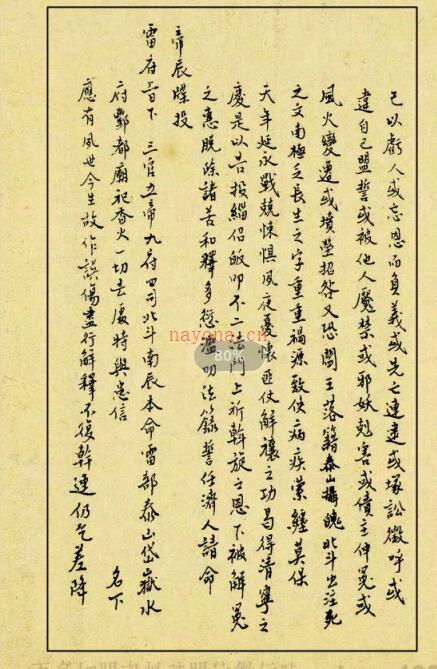 己以虧人或忘恩而負義或先亡連逮或塚訟徵呼或
違自己盟誓或被他人魘禁或邪妖尅害或債主伸冤或
風火變遷或墳塋招咎又恐閻王落籍泰山攝魄北斗出注死
之文南極乏長生之字重重禍源致使病疾縈纏莫保
天年延永戰兢悚惧夙夜憂懷匪仗解禳之功曷得清寧之
慶是以告投緇侣皈叩不二法門上祈斡旋之恩下被解冤
之惠脱除諸苦和釋多愆濫叨法籙誓任濟人請命
帝辰牒投
雷府旨下 三官五帝九府四司北斗南辰本命雷部泰山岱嶽水
府酆都廟祀香火一切去處特與患信 名下
應有夙世今生故作誤傷盡行解釋不復幹連仍乞差降
nayona.cn
80%